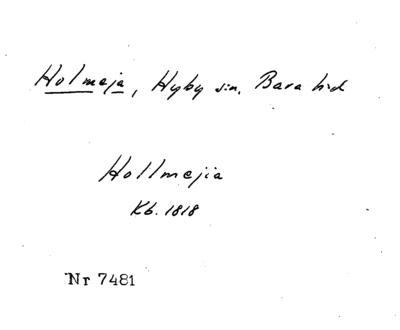 Holmeja, Hyby sn, Bara hd
Hollmejia
Kb. 1818
Nr 7481